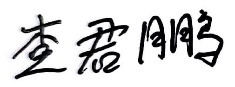 查君鹏